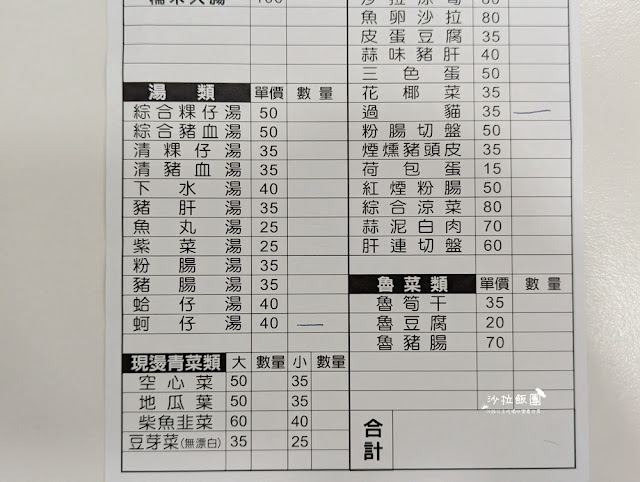 湯類 單價 數量
綜合粿仔湯 50
綜合豬血湯 50
清粿仔湯 35
清豬血湯 35
下水湯 40
豬肝湯 35
魚丸湯 25
紫菜湯 25
粉腸湯 35
豬腸湯 35
蛤仔湯 40
蚵仔湯 40
現燙青菜類 大 數量 小 數量
空心菜 50 35
地瓜葉 50 35
柴魚韭菜 60 40
豆芽菜(無漂白) 35 25
魚卵沙拉 80
皮蛋豆腐 35
蒜味豬肝 40
三色蛋 50
花椰菜 35
過貓 35
粉腸切盤 50
煙燻豬頭皮 35
荷包蛋 15
紅煙粉腸 50
綜合涼菜 80
蒜泥白肉 70
肝連切盤 60
魯菜類 單價 數量
魯筍干 35
魯豆腐 20
魯豬腸 70
合計
沙拉飯團